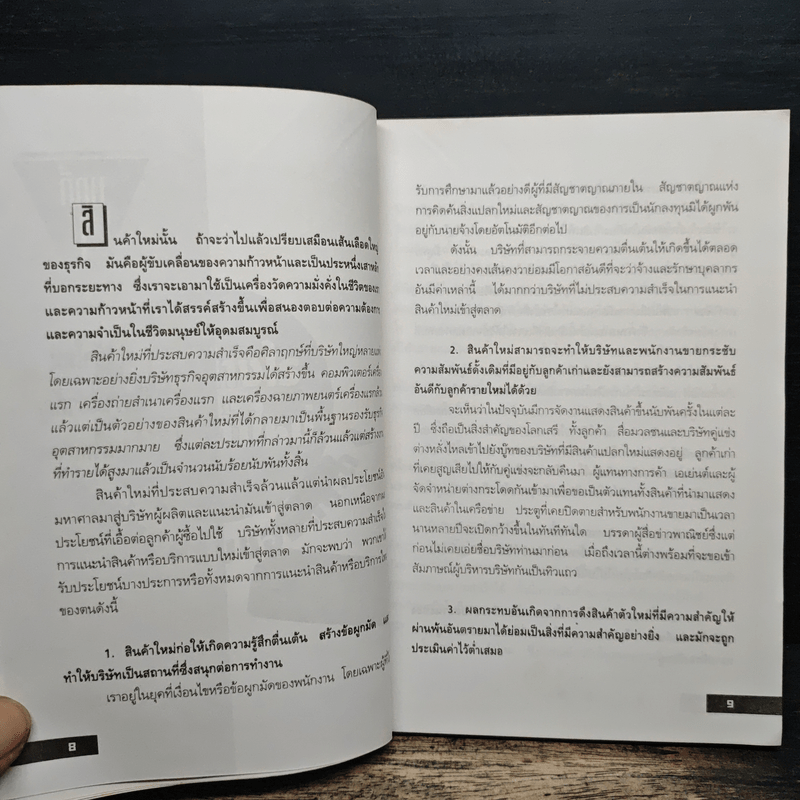 สินค้าใหม่นั้น ถ้าจะว่าไปแล้วเปรียบเสมือนเส้นเลือดใหญ่
ของธุรกิจ มันคือผู้ขับเคลื่อนของความก้าวหน้าและเป็นประหนึ่งเสาหลัก
ที่บอกระยะทาง ซึ่งเราจะเอามาใช้เป็นเครื่องวัดความมั่งคั่งในชีวิตของเรา
และความก้าวหน้าที่เราได้สรรค์สร้างขึ้นเพื่อสนองตอบต่อความต้องการ
และความจำเป็นในชีวิตมนุษย์ให้อุดมสมบูรณ์
สินค้าใหม่ที่ประสบความสำเร็จคือศิลาฤกษ์ที่บริษัทใหญ่หลายแห่ง
โดยเฉพาะอย่างยิ่งบริษัทธุรกิจอุตสาหกรรมได้สร้างขึ้น คอมพิวเตอร์เครื่อง
แรก เครื่องถ่ายสำเนาเครื่องแรก และเครื่องฉายภาพยนตร์เครื่องแรกล้วน
แล้วแต่เป็นตัวอย่างของสินค้าใหม่ที่ได้กลายมาเป็นพื้นฐานรองรับธุรกิจ
อุตสาหกรรมมากมาย ซึ่งแต่ละประเภทที่กล่าวมานี้ก็ล้วนแล้วแต่สร้าง
ที่ทำรายได้สูงมาแล้วเป็นจำนวนนับร้อยนับพันทั้งสิ้น
สินค้าใหม่ที่ประสบความสำเร็จล้วนแล้วแต่นำผลประโยชน์อัน
มหาศาลมาสู่บริษัทผู้ผลิตและแนะนำมันเข้าสู่ตลาด นอกเหนือจาก
ประโยชน์ที่เอื้อต่อลูกค้าผู้ซื้อไปใช้ บริษัททั้งหลายที่ประสบความสำเร็จใน
การแนะนำสินค้าหรือบริการแบบใหม่เข้าสู่ตลาด มักจะพบว่า พวกเขาได้
รับประโยชน์บางประการหรือทั้งหมดจากการแนะนำสินค้าหรือบริการใหม่
ของตนดังนี้
1. สินค้าใหม่ก่อให้เกิดความรู้สึกตื่นเต้น สร้างข้อผูกมัด และ
ทำให้บริษัทเป็นสถานที่ซึ่งสนุกต่อการทำงาน
เราอยู่ในยุคที่เงื่อนไขหรือข้อผูกมัดของพนักงาน โดยเฉพาะผู้ที่ได้
8
รับการศึกษามาแล้วอย่างดีผู้ที่มีสัญชาตญาณภายใน สัญชาตญาณแห่ง
การคิดค้นสิ่งแปลกใหม่และสัญชาตญาณของการเป็นนักลงทุนมิได้ผูกพัน
อยู่กับนายจ้างโดยอัตโนมัติอีกต่อไป
ดังนั้น บริษัทที่สามารถกระจายความตื่นเต้นให้เกิดขึ้นได้ตลอด
เวลาและอย่างคงเส้นคงวาย่อมมีโอกาสอันดีที่จะว่าจ้างและรักษาบุคลากร
อันมีค่าเหล่านี้ ได้มากกว่าบริษัทที่ไม่ประสบความสำเร็จในการแนะนำ
สินค้าใหม่เข้าสู่ตลาด
2. สินค้าใหม่สามารถจะทำให้บริษัทและพนักงานขายกระชับ
ความสัมพันธ์ดั้งเดิมที่มีอยู่กับลูกค้าเก่าและยังสามารถสร้างความสัมพันธ์
อันดีกับลูกค้ารายใหม่ได้ด้วย
จะเห็นว่าในปัจจุบันมีการจัดงานแสดงสินค้าขึ้นนับพันครั้งในแต่ละ
ปี ซึ่งถือเป็นสิ่งสำคัญของโลกเสรี ทั้งลูกค้า สื่อมวลชนและบริษัทคู่แข่ง
ต่างหลั่งไหลเข้าไปยังบู๊ทของบริษัทที่มีสินค้าแปลกใหม่แสดงอยู่ ลูกค้าเก่า
ที่เคยสูญเสียไปให้กับคู่แข่งจะกลับคืนมา ผู้แทนทางการค้า เอเย่นต์และผู้
จัดจำหน่ายต่างกระโดดกันเข้ามาเพื่อขอเป็นตัวแทนทั้งสินค้าที่นำมาแสดง
และสินค้าในเครือข่าย ประตูที่เคยปิดตายสำหรับพนักงานขายมาเป็นเวลา
นานหลายปีจะเปิดกว้างขึ้นในทันทีทันใด บรรดาผู้สื่อข่าวพาณิชย์ซึ่งแต่
ก่อนไม่เคยเอ่ยชื่อบริษัทท่านมาก่อน เมื่อถึงเวลานี้ต่างพร้อมที่จะขอเข้า
สัมภาษณ์ผู้บริหารบริษัทกันเป็นทิวแถว
3. ผลกระทบอันเกิดจากการดึงสินค้าตัวใหม่ที่มีความสำคัญให้
ผ่านพ้นอันตรายมาได้ย่อมเป็นสิ่งที่มีความสำคัญอย่างยิ่ง และมักจะถูก
ประเมินค่าไว้ต่ำเสมอ
9